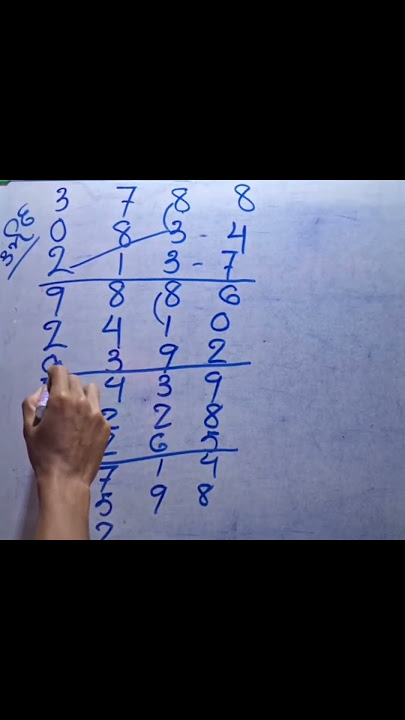 3 7 8 8
0 8 3 - 4
2 1 3 - 7
9 8 8 6
2 4 1 0
3 9 2
4 3 9
2 2 8
6 5
7 1 4
5 9 8
2